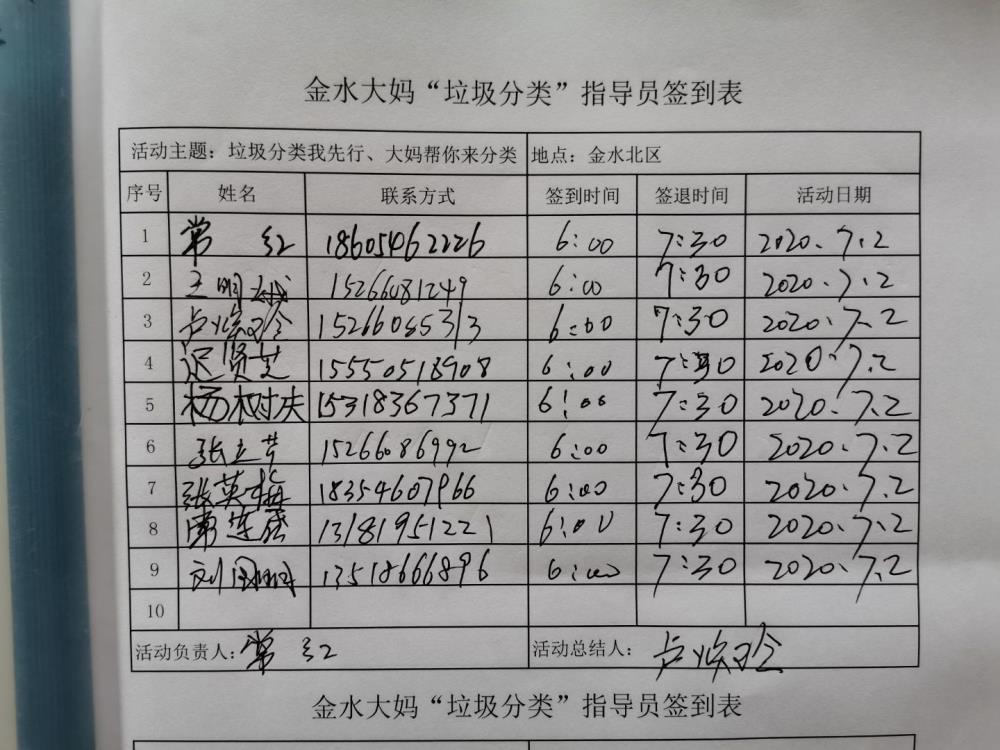 金水大妈“垃圾分类”指导员签到表
活动主题：垃圾分类我先行、大妈帮你来分类 地点：金水北区
序号 姓名 联系方式 签到时间 签退时间 活动日期
1 常红 18605462226 6:00 7:30 2020.7.2
2 王明 15266081249 6:00 7:30 2020.7.2
3 卢焕玲 15266085313 6:00 7:30 2020.7.2
4 迟贤芝 15550518908 6:00 7:30 2020.7.2
5 杨树庆 15318367371 6:00 7:30 2020.7.2
6 张立芹 15266086992 6:00 7:30 2020.7.2
7 张英梅 18354607966 6:00 7:30 2020.7.2
8 13181951221 6:00 7:30 2020.7.2
9 刘 13518666896 6:00 7:30 2020.7.2
10
活动负责人：常红 活动总结人：卢焕玲
金水大妈“垃圾分类”指导员签到表